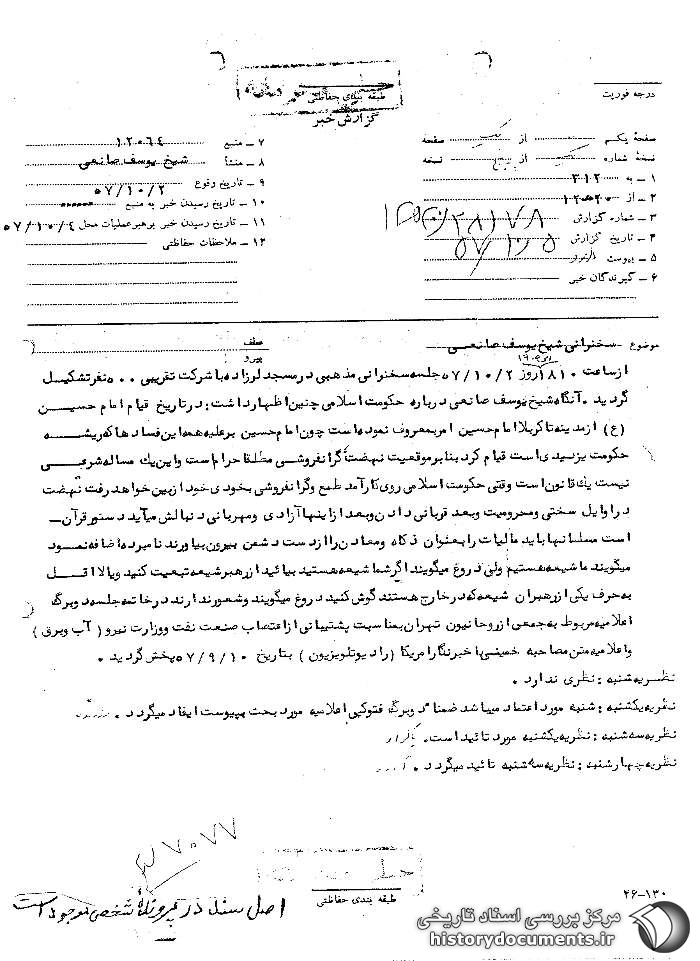 طبقه بندی حفاظتی
گزارش خبر
درجه فوریت
صفحهٔ یکم از یک صفحه
نسخهٔ شماره یک از پنج نسخه
۱ ـ به ۳۱۲
۲ ـ از ۱۲۵۲۰
۳ ـ شماره گزارش ۲۸۱۷۸
۴ ـ تاریخ گزارش ۵۷/۱۰/۵
۵ ـ پیوست دارد
۶ ـ گیرندگان خبر
۷ ـ منبع ۱۲۰۶۴
۸ ـ منشأ شیخ یوسف صانعی
۹ ـ تاریخ وقوع ۵۷/۱۰/۲
۱۰ ـ تاریخ رسیدن خبر به منبع
۱۱ ـ تاریخ رسیدن خبر برهبر عملیات محل ۵۷/۱۰/۴
۱۲ ـ ملاحظات حفاظتی
موضوع ـ سخنرانی شیخ یوسف صانعی
عطف
پیرو
از ساعت ۱۸۱۰ روز ۵۷/۱۰/۲ جلسه سخنرانی مذهبی در مسجد لرزاده با شرکت تقریبی ۵۰۰ نفر تشکیل
گردید . آنگاه شیخ یوسف صانعی درباره حکومت اسلامی چنین اظهار داشت : در تاریخ قیام امام حسین
(ع) از مدینه تا کربلا امام حسین امر بمعروف نموده است چون امام حسین بر علیه همه این فسادها که ریشه
حکومت یزیدی است قیام کرد بنا بر موقعیت نهضت گرانفروشی مطلقا حرام است و این یک مساله شرعی
نیست یک قانون است وقتی حکومت اسلامی روی کار آمد طمع و گرانفروشی بخودی خود از بین خواهد رفت نهضت
در اوایل سختی و محرومیت و بعد قربانی دادن و بعد از اینها آزادی و مهربانی دنبالش میآید دستور قرآن ـ
است مسلمانها باید مالیات را بعنوان ذکاه و معادن را از دست دشمن بیرون بیاورند نامبرده اضافه نمود
میگویند ما شیعه هستیم ولی دروغ میگویند اگر شما شیعه هستید بیائید از رهبر شیعه تبعیت کنید و یا لااقل
به حرف یکی از رهبران شیعه که در خارج هستند گوش کنید دروغ میگویند و شعور ندارند در خاتمه جلسه دو برگ
اعلامیه مربوط به جمعی از روحانیون تهران بمناسبت پشتیبانی از اعتصاب صنعت نفت و وزارت نیرو ( آب و برق )
و اعلامیه متن مصاحبه خمینی با خبرنگار امریکا ( رادیو تلویزیون ) بتاریخ ۵۷/۹/۱۰ پخش گردید .
نظریه شنبه : نظری ندارد .
نظریه یکشنبه : شنبه مورد اعتماد میباشد ضمنا دو برگ فتوکپی اعلامیه مورد بحث بپیوست ایفاد میگردد .
نظریه سه شنبه : نظریه یکشنبه مورد تائید است .
نظریه چهارشنبه : نظریه سه شنبه تائید میگردد .
طبقه بندی حفاظتی
۴۶-۱۳۰
اصل سند در پرونده شخصی موجود است
مرکز بررسی اسناد تاریخی
historydocuments.ir